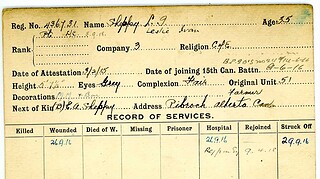 Reg. No. 436731 Name Shippy L. I. Age 35
Leslie Ivan
Rank Company 3 Religion C of E
Date of Attestation 3/2/15 Date of joining 15th Can. Battn. 8-6-16
Height Eyes Grey Complexion Fair Original Unit 51
Decorations Farmer
Next of Kin Shippy Address Pibroch Alberta Can
RECORD OF SERVICES.
Killed Wounded Died of W. Missing Prisoner Hospital Rejoined Struck Off
26.9.16 26.9.16 29.9.16
9.4.18